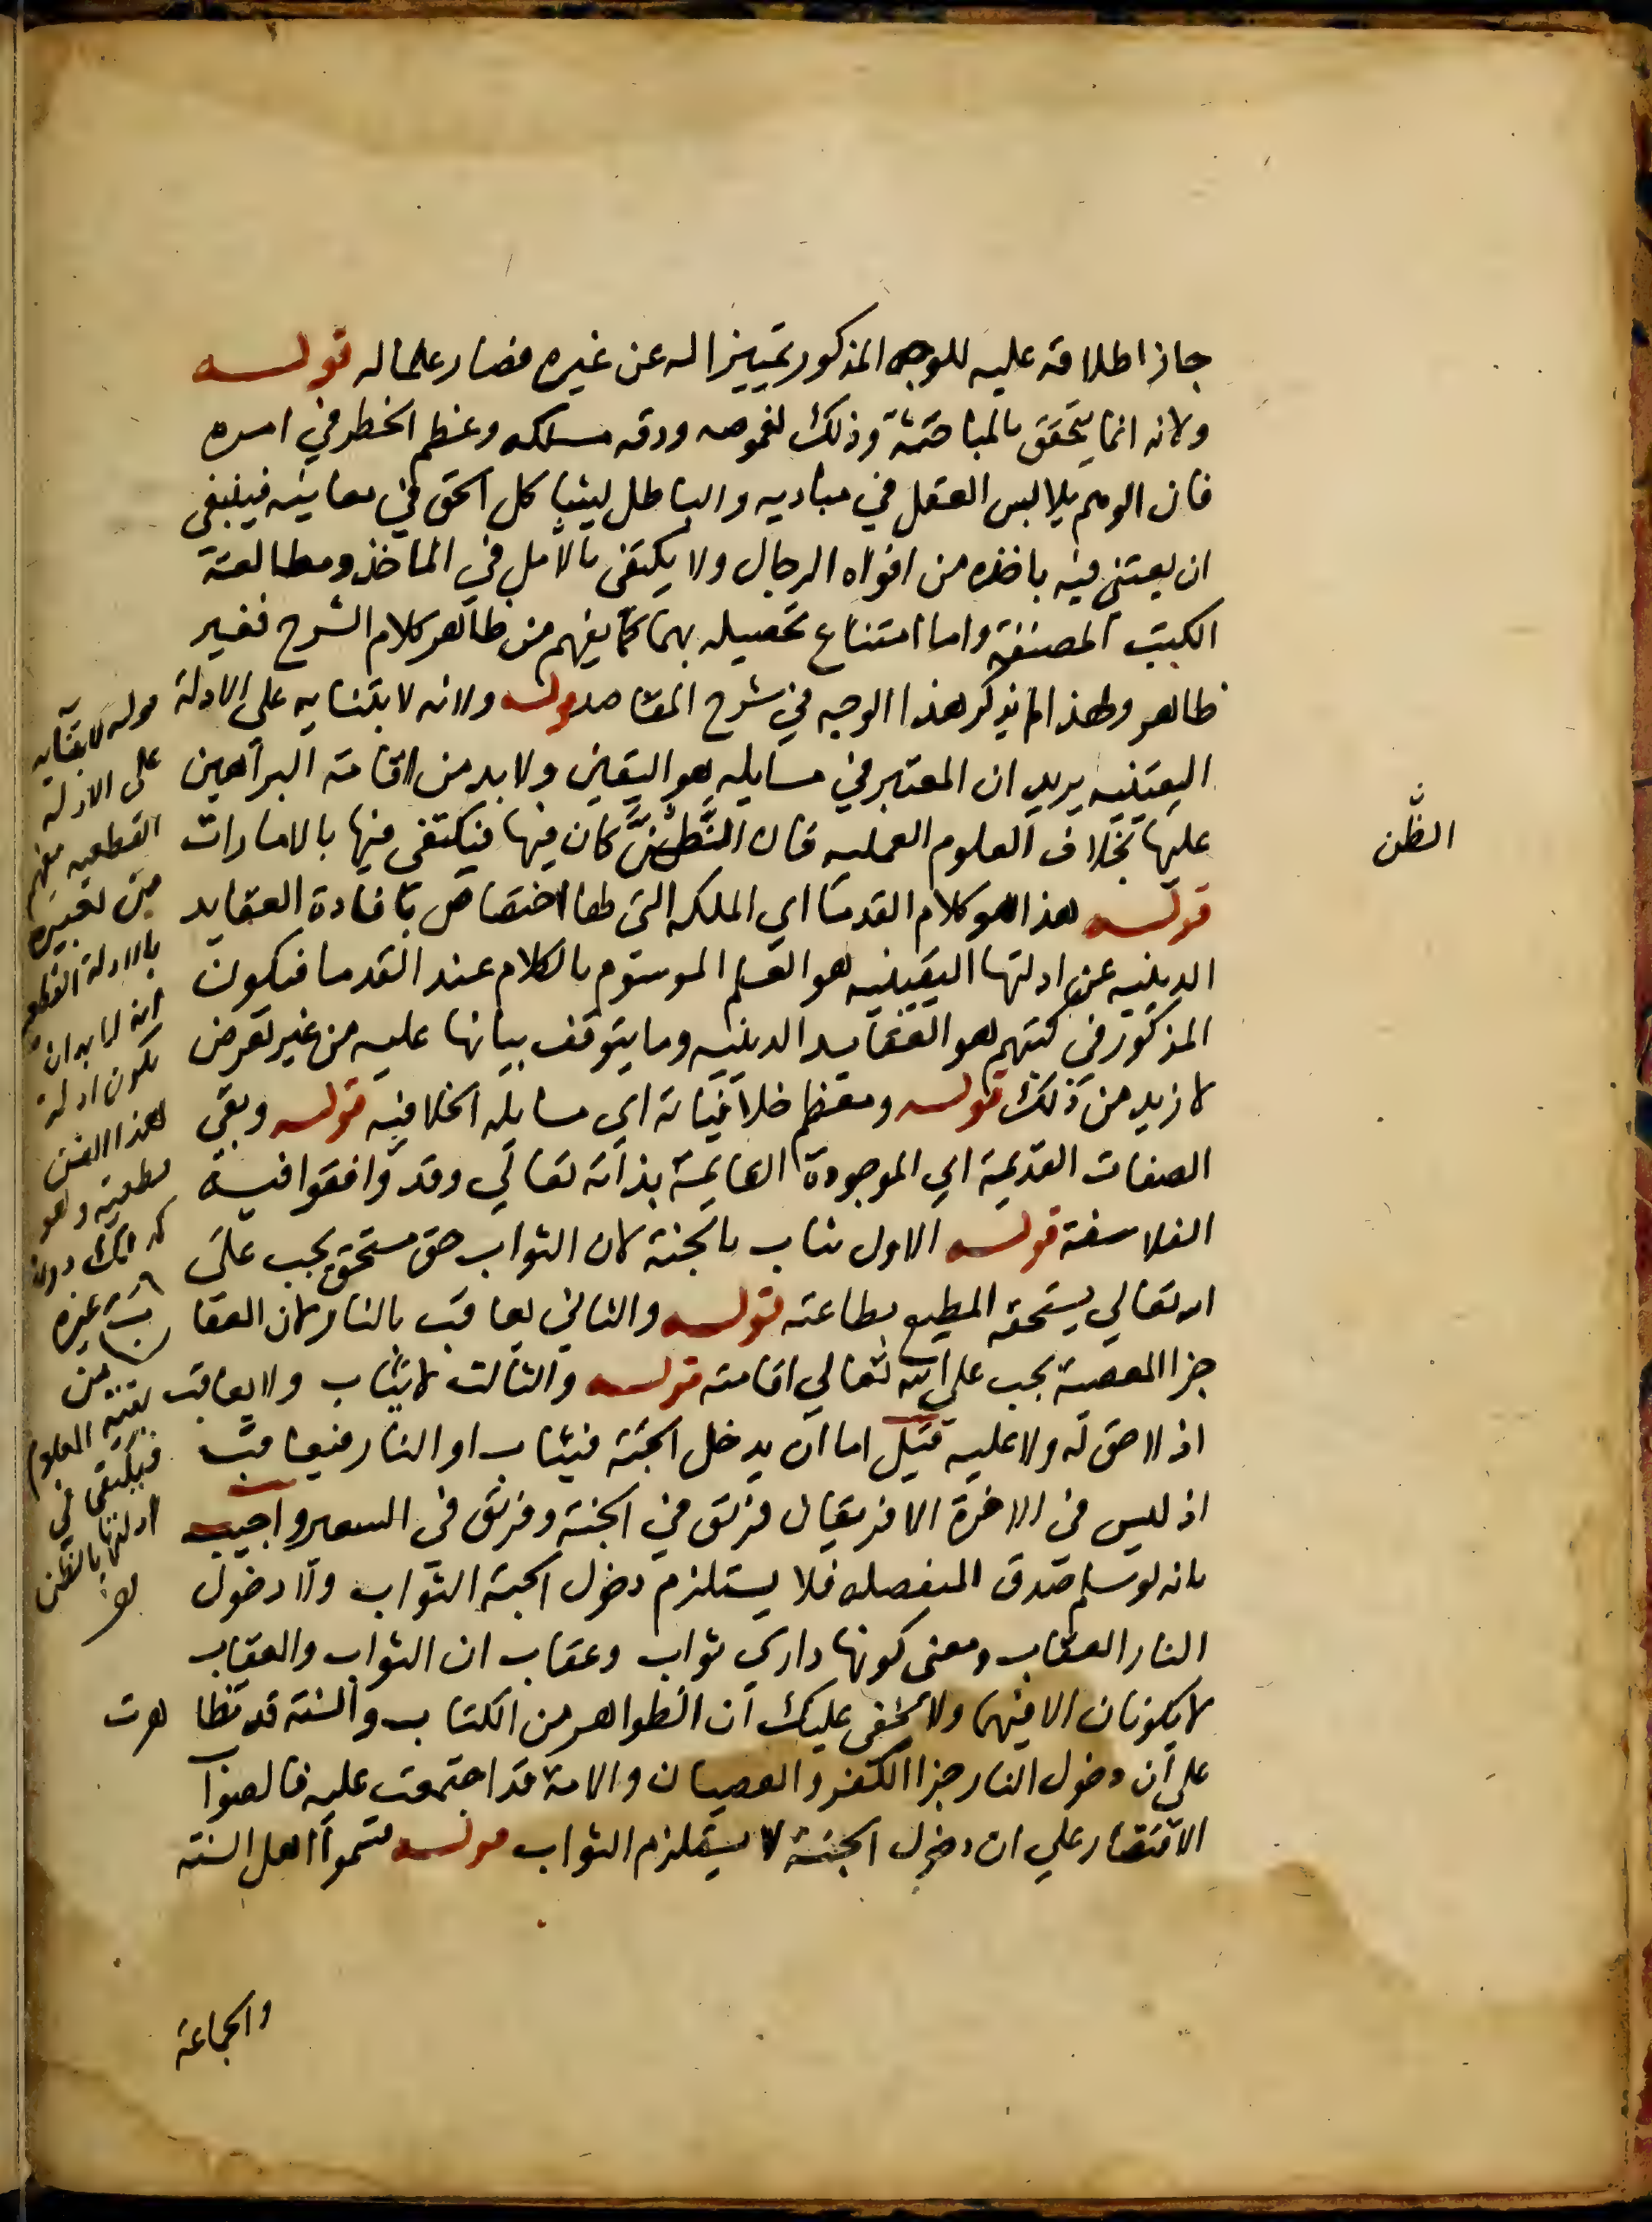 جاز اطلاقه عليه للوجه المذكور تمييزا له عن غيره فصار علما له قوله
ولانه انما يتحقق بالمباحثة وذلك لغموضه ودقه مسلكه وعظم الخطر في امره
فان الوهم يلابس العقل في مباديه والباطل يشاكل الحق في معانيه فينبغي
ان يعتني فيه باخذه من افواه الرجال ولا يكتفى بالتأمل في المآخذ ومطالعة
الكتب المصنفة واما امتناع تحصيله بهما كما يفهم من ظاهر كلام الشرح فغير
ظاهر ولهذا لم يذكر هذا الوجه في شرح المقاصد قوله ولانه لابتنايه على الادلة
اليقينيه يريد ان المعتبر في مسايله هو اليقين ولا بد من اقامة البراهين
عليها بخلاف العلوم العمليه فان الظن كان فيها فيكتفى فيها بالامارات
قوله هذا هو كلام القدما اي الملكه التي لها اختصاص بافادة العقايد
الدينيه عن ادلتها اليقينيه هو العلم الموسوم بالكلام عند القدما فيكون
المذكور في كتبهم هو العقايد الدينيه وما يتوقف بيانها عليه من غير تعرض
لازيد من ذلك قوله ومعظم خلافياته اي مسايله الخلافيه قوله وبقي
الصفات القديمة اي الموجودة القايمة بذاته تعالي وقد وافقوا فيه
الفلاسفة قوله الاول يثاب بالجنة لان الثواب حق مستحق يجب على
الله تعالي يستحقه المطيع بطاعته قوله والثاني يعاقب بالنار لان العقاب
جزا المعصية يجب على الله تعالي اقامته قوله والثالث لا يثاب ولا يعاقب
اذ لا حق له ولا عليه قيل اما ان يدخل الجنة فيثاب او النار فيعاقب
اذ ليس في الاخرة الا فريقان فريق في الجنة وفريق في السعير واجيب
بانه لو سلم صدق المنفصله فلا يستلزم دخول الجنة الثواب ولا دخول
النار العقاب ومعنى كونها داري ثواب وعقاب ان الثواب والعقاب
لا يكونان الا فيهما ولا يخفى عليك ان الظواهر من الكتاب والسنة قد تظاهرت
على ان دخول النار جزا الكفر والعصيان والامة قد اجتمعت عليه فالصواب
الاقتصار علي ان دخول الجنة لا يستلزم الثواب قوله فسموا اهل السنة
والجماعة
الظن
قوله لابتنايه
على الادلة
القطعيه يفهم
من تعبيره
بالادلة القطعيه
انه لا بد ان
تكون ادلة
هذا الفن
قطعية وهو
كذلك دون
غيره
من
بقية العلوم
فيكتفى في
ادلتها بالظن